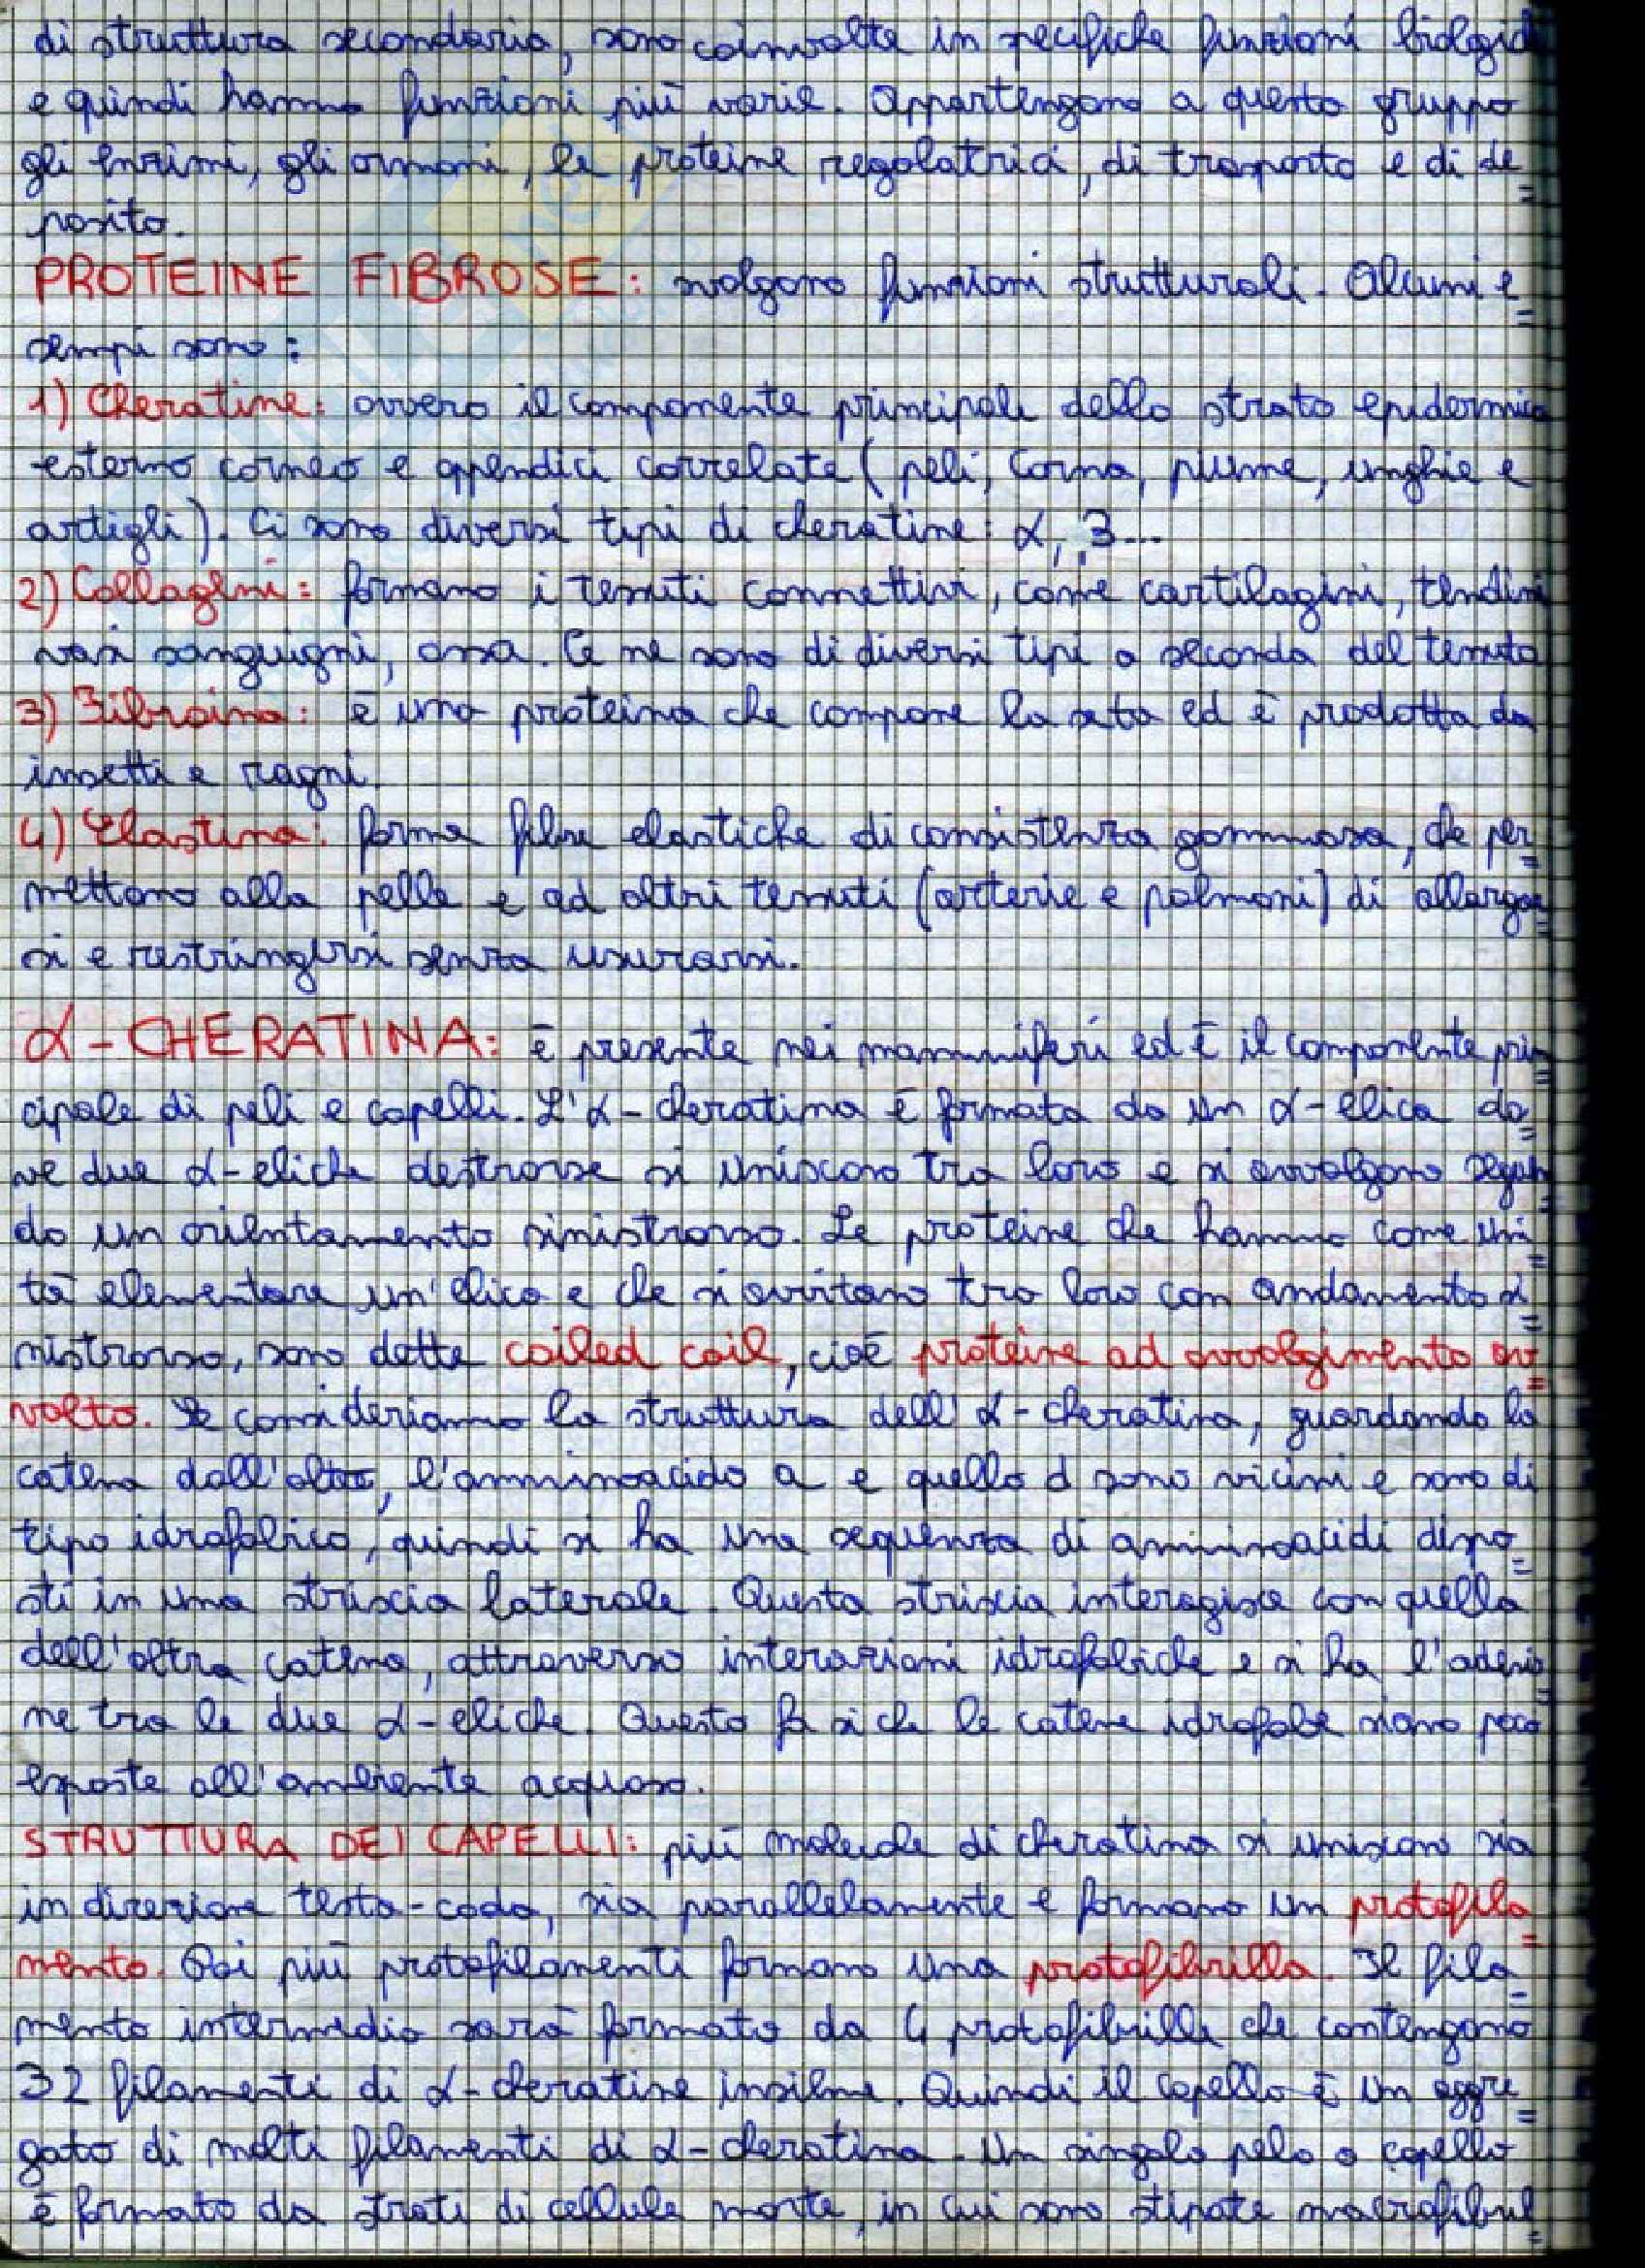 di struttura secondaria, sono coinvolte in specifiche funzioni biologich
e quindi hanno funzioni più varie. Appartengono a questo gruppo
gli enzimi, gli ormoni, le proteine regolatrici, di trasporto e di de=
posito.
PROTEINE FIBROSE: svolgono funzioni strutturali. Alcuni e=
sempi sono:
1) Cheratine: ovvero il componente principale dello strato epidermico
esterno corneo e appendici correlate (peli, corna, piume, unghie e
artigli). Ci sono diversi tipi di cheratine: α, β...
2) Collageni: formano i tessuti connettivi, come cartilagini, tendini
vasi sanguigni, ossa. Ce ne sono di diversi tipi a seconda del tessuto
3) Fibroina: è una proteina che compone la seta ed è prodotta da
insetti e ragni.
4) Elastina: forma fibre elastiche di consistenza gommosa, che per=
mettono alla pelle e ad altri tessuti (arterie e polmoni) di allargar=
si e restringersi senza usurarsi.
α-CHERATINA: è presente nei mammiferi ed è il componente prin=
cipale di peli e capelli. L'α-cheratina è formata da un α-elica do=
ve due α-eliche destrorse si uniscono tra loro e si avvolgono seguen=
do un orientamento sinistrorso. Le proteine che hanno come uni=
tà elementare un'elica e che si avvitano tra loro con andamento si=
nistrorso, sono dette coiled coil, cioè proteine ad avvolgimento av=
volto. Se consideriamo la struttura dell'α-cheratina, guardando la
catena dall'alto, l'amminoacido a e quello d sono vicini e sono di
tipo idrofobico, quindi si ha una sequenza di amminoacidi dispo=
sti in una striscia laterale. Questa striscia interagisce con quella
dell'altra catena, attraverso interazioni idrofobiche e si ha l'adesio=
ne tra le due α-eliche. Questo fa si che le catene idrofobe siano poco
esposte all'ambiente acquoso.
STRUTTURA DEI CAPELLI: più molecole di cheratina si uniscono sia
in direzione testa-coda, sia parallelamente e formano un protofila=
mento. Poi più protofilamenti formano una protofibrilla. Il fila=
mento intermedio sarà formato da 4 protofibrille che contengono
32 filamenti di α-cheratine insieme. Quindi il capello è un aggre=
gato di molti filamenti di α-cheratina. Un singolo pelo o capello
è formato da strati di cellule morte, in cui sono stipate macrofibril=